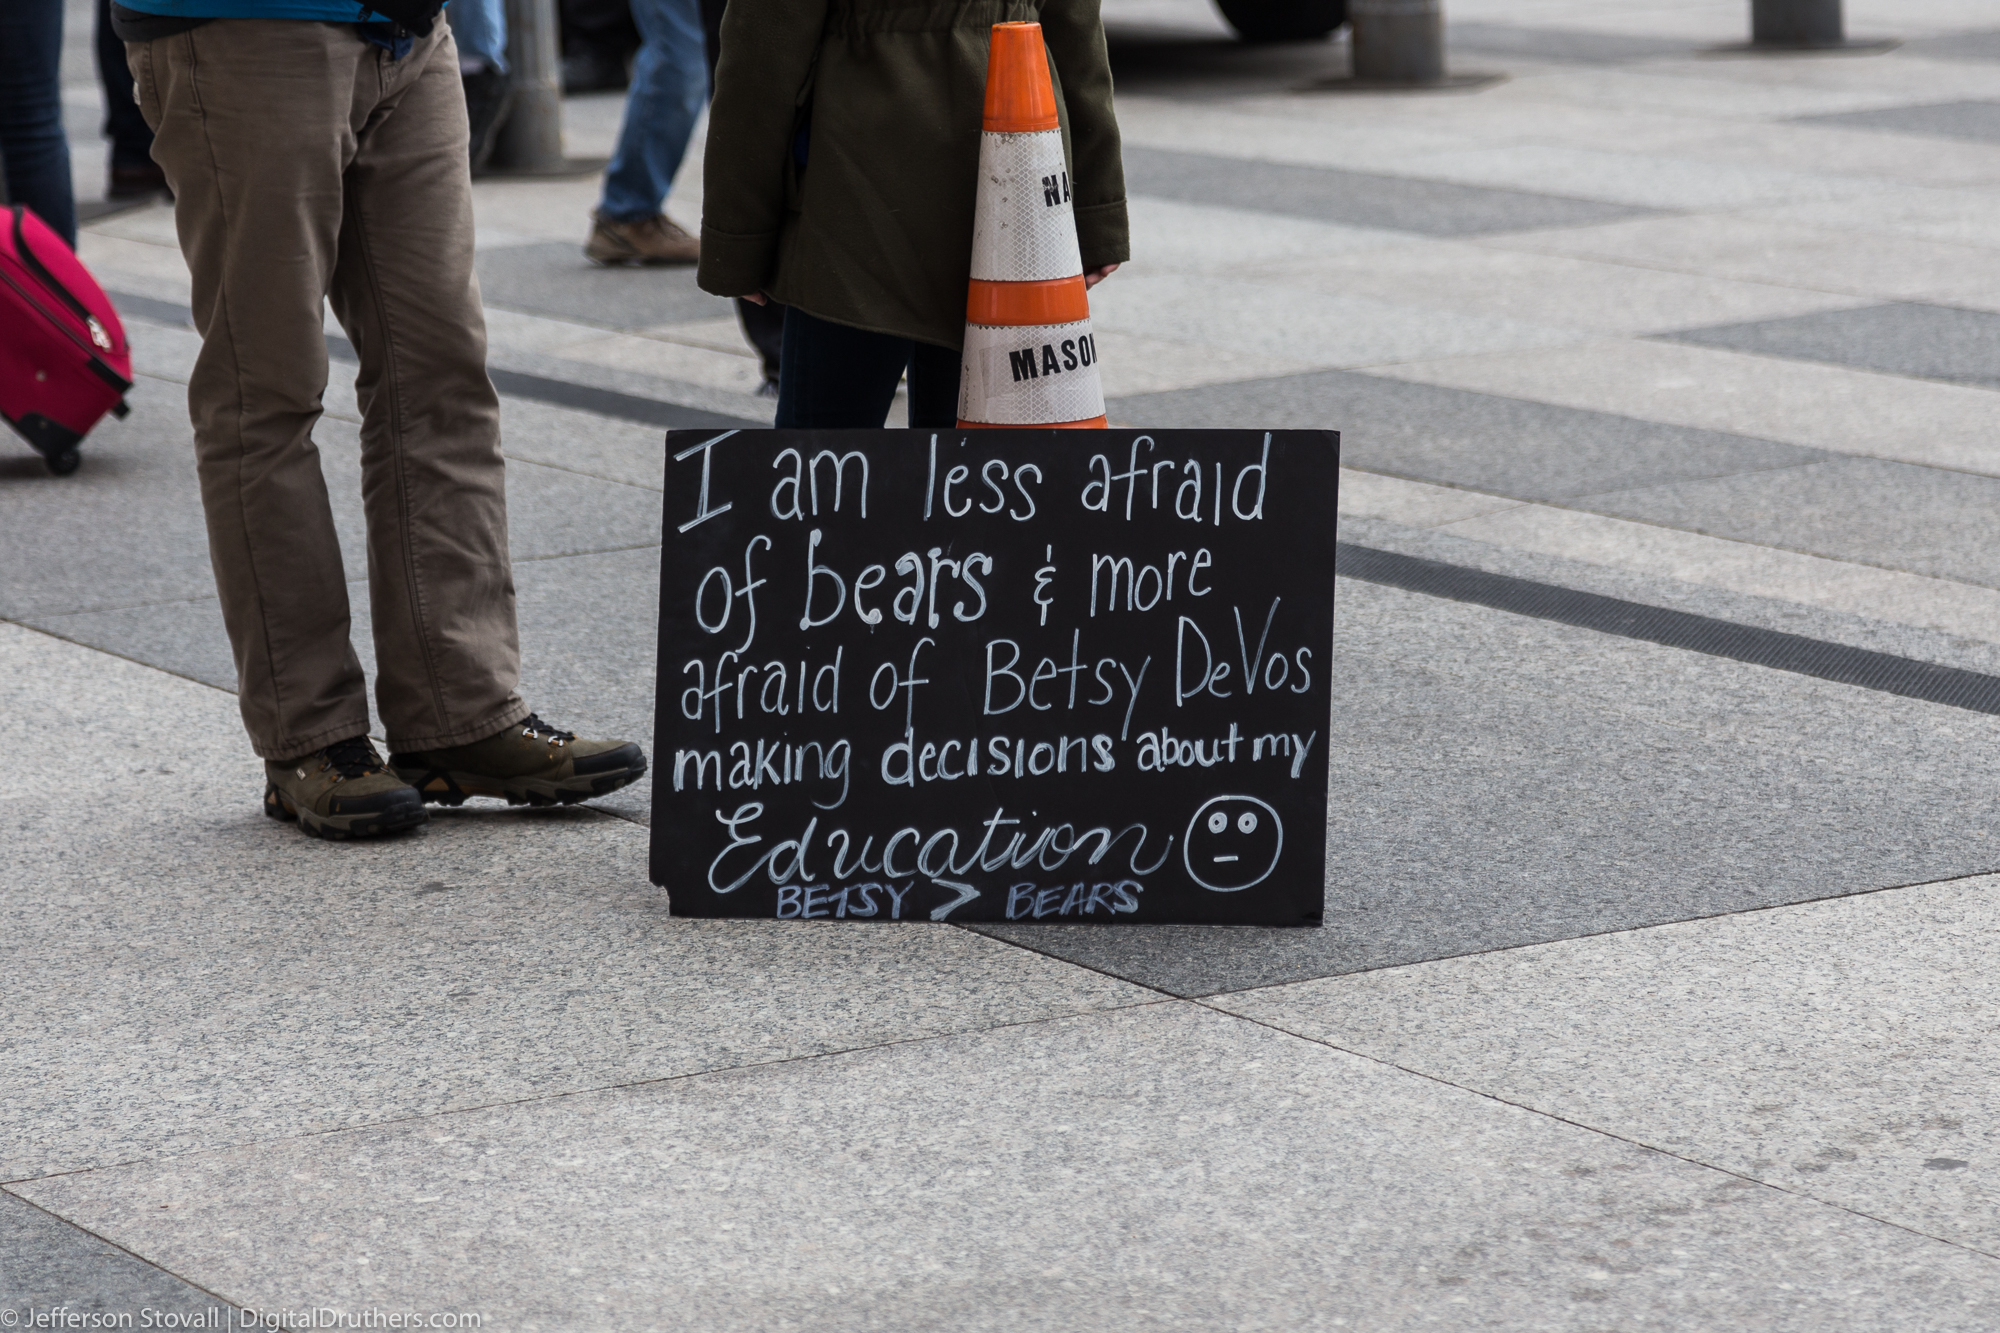 NA
MASON
I am less afraid
of bears & more
afraid of Betsy DeVos
making decisions about my
Education
BETSY > BEARS
© Jefferson Stovall | DigitalDruthers.com